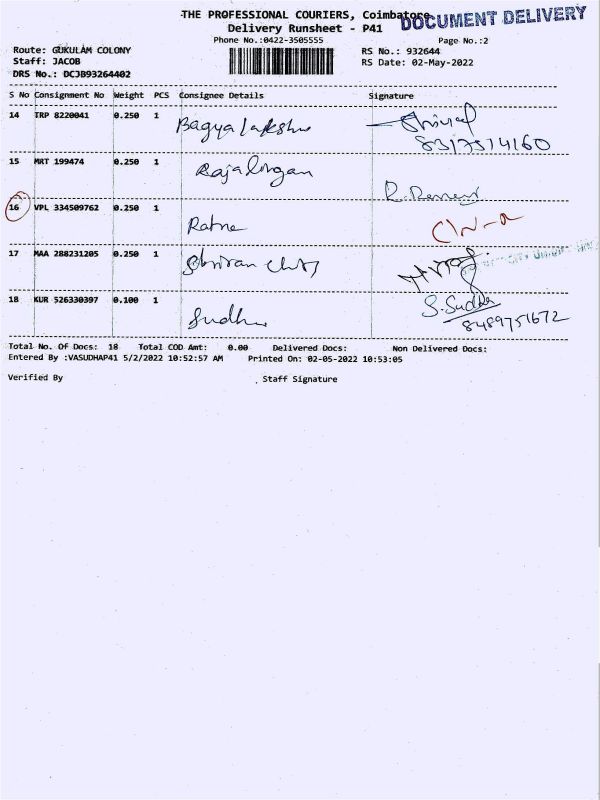 THE PROFESSIONAL COURIERS, Coimbatore
DOCUMENT DELIVERY
Delivery Runsheet - P41
Phone No.:0422-3505555
Page No.:2
Route: GUKULAM COLONY
RS No.: 932644
Staff: JACOB
RS Date: 02-May-2022
DRS No.: DCJB93264402
S No Consignment No Weight PCS Consignee Details Signature
14 TRP 8220041 0.250 1
Bagyalakshmi
8317514160
15 MRT 199474 0.250 1
Rajalingam
16 VPL 334509762 0.250 1
Ratna
17 MAA 288231205 0.250 1
18 KUR 526330397 0.100 1
Sudha
S. Sudha
8489751672
Total No. Of Docs: 18 Total COD Amt: 0.00 Delivered Docs: Non Delivered Docs:
Entered By :VASUDHAP41 5/2/2022 10:52:57 AM Printed On: 02-05-2022 10:53:05
Verified By Staff Signature